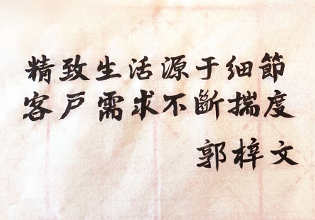 精致生活源于细節
客戶需求不斷揣度
郭梓文